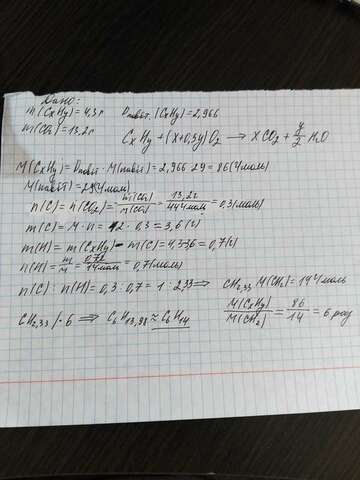 Дано:
m(CxHy)=4,3г Dпов.(CxHy)=2,966
m(CO2)=13,2г
CxHy+(x+0,5y)O2 → XCO2+y/2 H2O
M(CxHy)=Dпов·M(пов)=2,966·29=86(г/моль)
M(пов)=29(г/моль)
n(C)=n(CO2)=m(CO2)/M(CO2)=13,2г/44г/моль=0,3(моль)
m(C)=M·n=12·0,3=3,6(г)
m(H)=m(CxHy)-m(C)=4,3-3,6=0,7(г)
n(H)=m/M=0,7г/1г/моль=0,7(моль)
n(C):n(H)=0,3:0,7=1:2,33⇒ CH2,33 M(CH2)=14г/моль
CH2,33 /·6 ⇒ C6H13,98≈C6H14 M(CxHy)/M(CH2)=86/14=6 раз